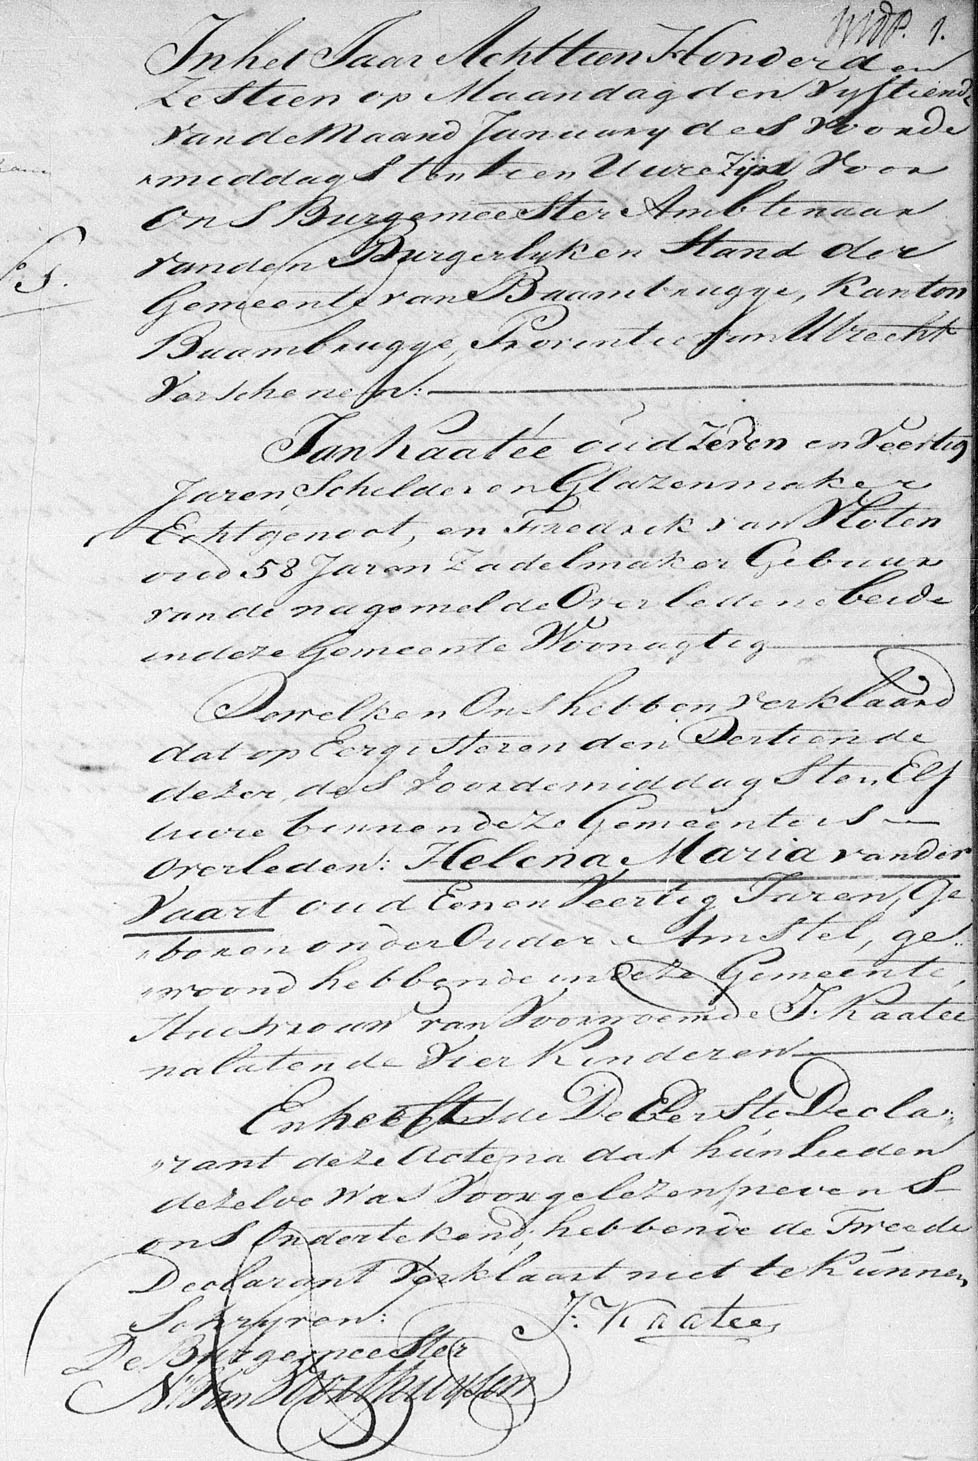 1.
In het Jaar Achttien Honderd en
Zestien op Maandag den Vyftiend
van de Maand January des Voorde
middags ten tien Uure zijn Voor
Ons Burgemeester Ambtenaar
van den Burgerlyken Stand der
Gemeente van Baambrugge, Kanton
Baambrugge, Provintie van Utrecht
Verschenen:
Jan Kaatée oud Zeven en Veertig
Jaren, Schilder en Glazenmaker
Echtgenoot, en Fredrik van Vloten
oud 58 Jaren Zadelmaker Gebuur
van de nagemelde Overledene beide
in deze Gemeente Woonagtig
Dewelken Ons hebben verklaard
dat op Eergisteren den Dertiende
dezer, des Voordemiddags ten Elf
uure binnen deze Gemeente is
Overleden: Helena Maria van der
Vaart oud Een en Veertig Jaren, Ge
boren onder Ouder Amstel, ge
woond hebbende in deze Gemeente,
Huisvrouw van Voornoemde J: Kaatee
nalatende Vier Kinderen
En heeft de De Eerste Decla
rant deze Acte na dat hún lieden
dezelve was Voorgelezen, nevens
ons Ondertekend, hebbende de Tweede
Declarant Verklaart niet te kúnnen
Schryven:
J: Kaatee
De Burgemeester